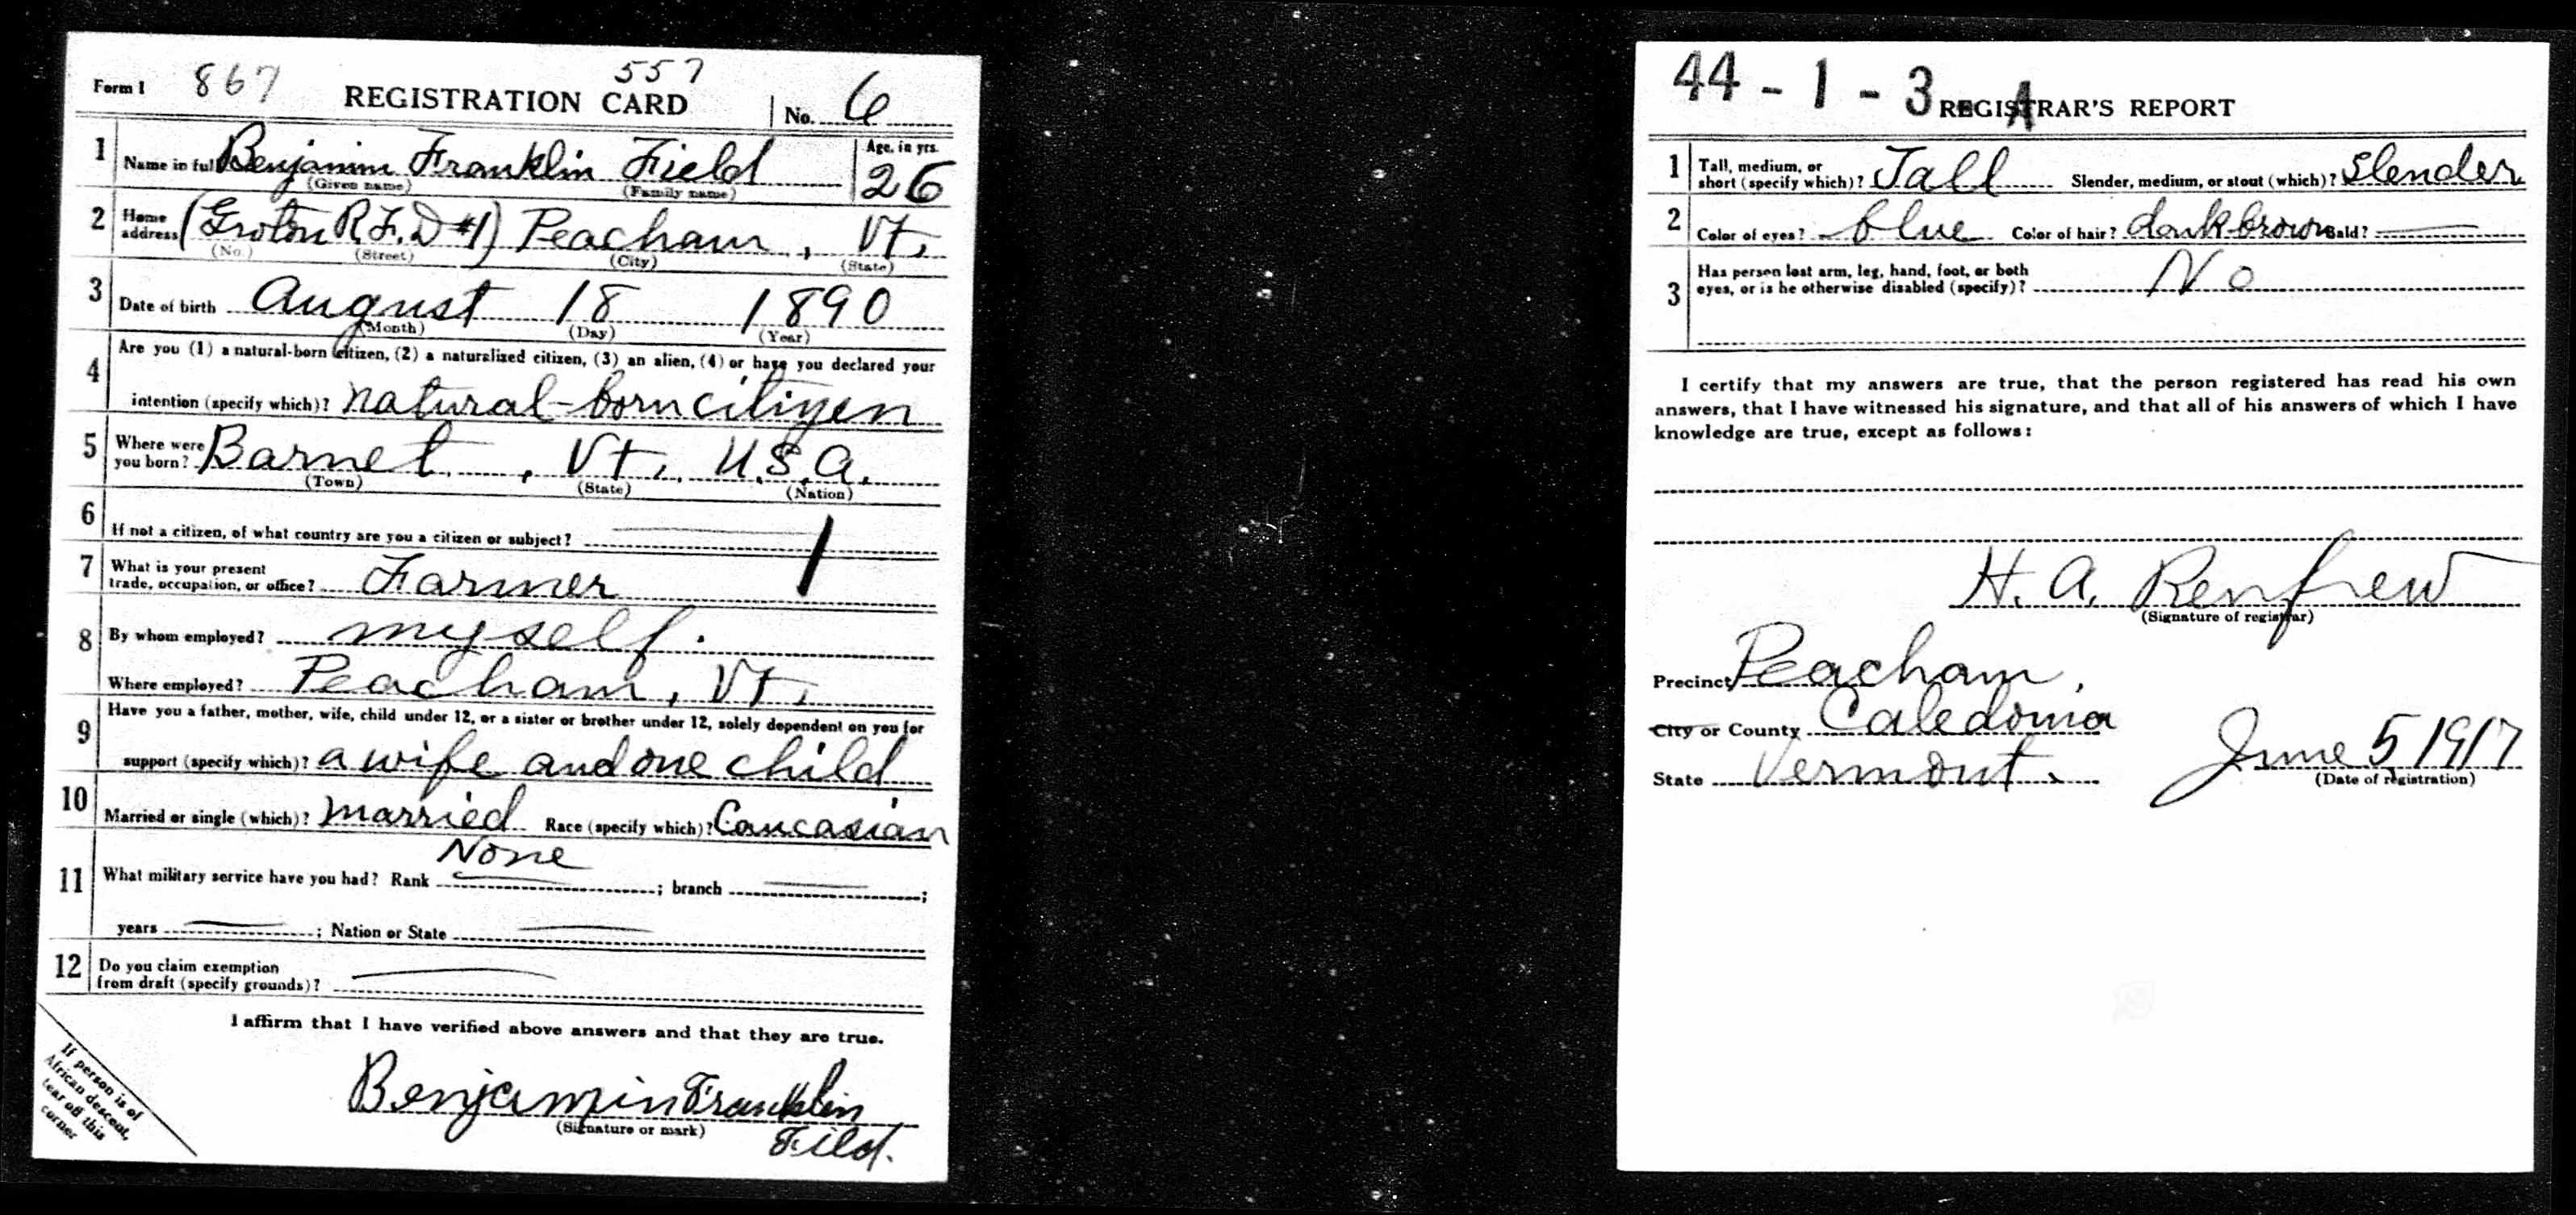 557
Form 1 867 REGISTRATION CARD No. 6
1 Name in full Benjamin Franklin Field Age, in yrs. 26
(Given name) (Family name)
2 Home address (Groton R.F.D #1) Peacham, Vt.
(No.) (Street) (City) (State)
3 Date of birth August 18 1890
(Month) (Day) (Year)
4 Are you (1) a natural-born citizen, (2) a naturalized citizen, (3) an alien, (4) or have you declared your
intention (specify which)? natural-born citizen
5 Where were you born? Barnet, Vt. U.S.A.
(Town) (State) (Nation)
6 If not a citizen, of what country are you a citizen or subject?
7 What is your present
trade, occupation, or office? Farmer
8 By whom employed? myself.
Where employed? Peacham, Vt.
9 Have you a father, mother, wife, child under 12, or a sister or brother under 12, solely dependent on you for
support (specify which)? a wife and one child
10 Married or single (which)? married Race (specify which)? Caucasian
None
11 What military service have you had? Rank ; branch ;
years ; Nation or State
12 Do you claim exemption
from draft (specify grounds)?
I affirm that I have verified above answers and that they are true.
Benjamin Franklin
(Signature or mark) Field.
If person is of
African descent,
tear off this
corner
44 - 1 - 3 A REGISTRAR'S REPORT
1 Tall, medium, or
short (specify which)? Tall Slender, medium, or stout (which)? Slender
2 Color of eyes? blue Color of hair? dark brown Bald?
3 Has person lost arm, leg, hand, foot, or both
eyes, or is he otherwise disabled (specify)? No
I certify that my answers are true, that the person registered has read his own
answers, that I have witnessed his signature, and that all of his answers of which I have
knowledge are true, except as follows:
H. A. Renfrew
(Signature of registrar)
Precinct Peacham,
City or County Caledonia
State Vermont. June 5 1917
(Date of registration)